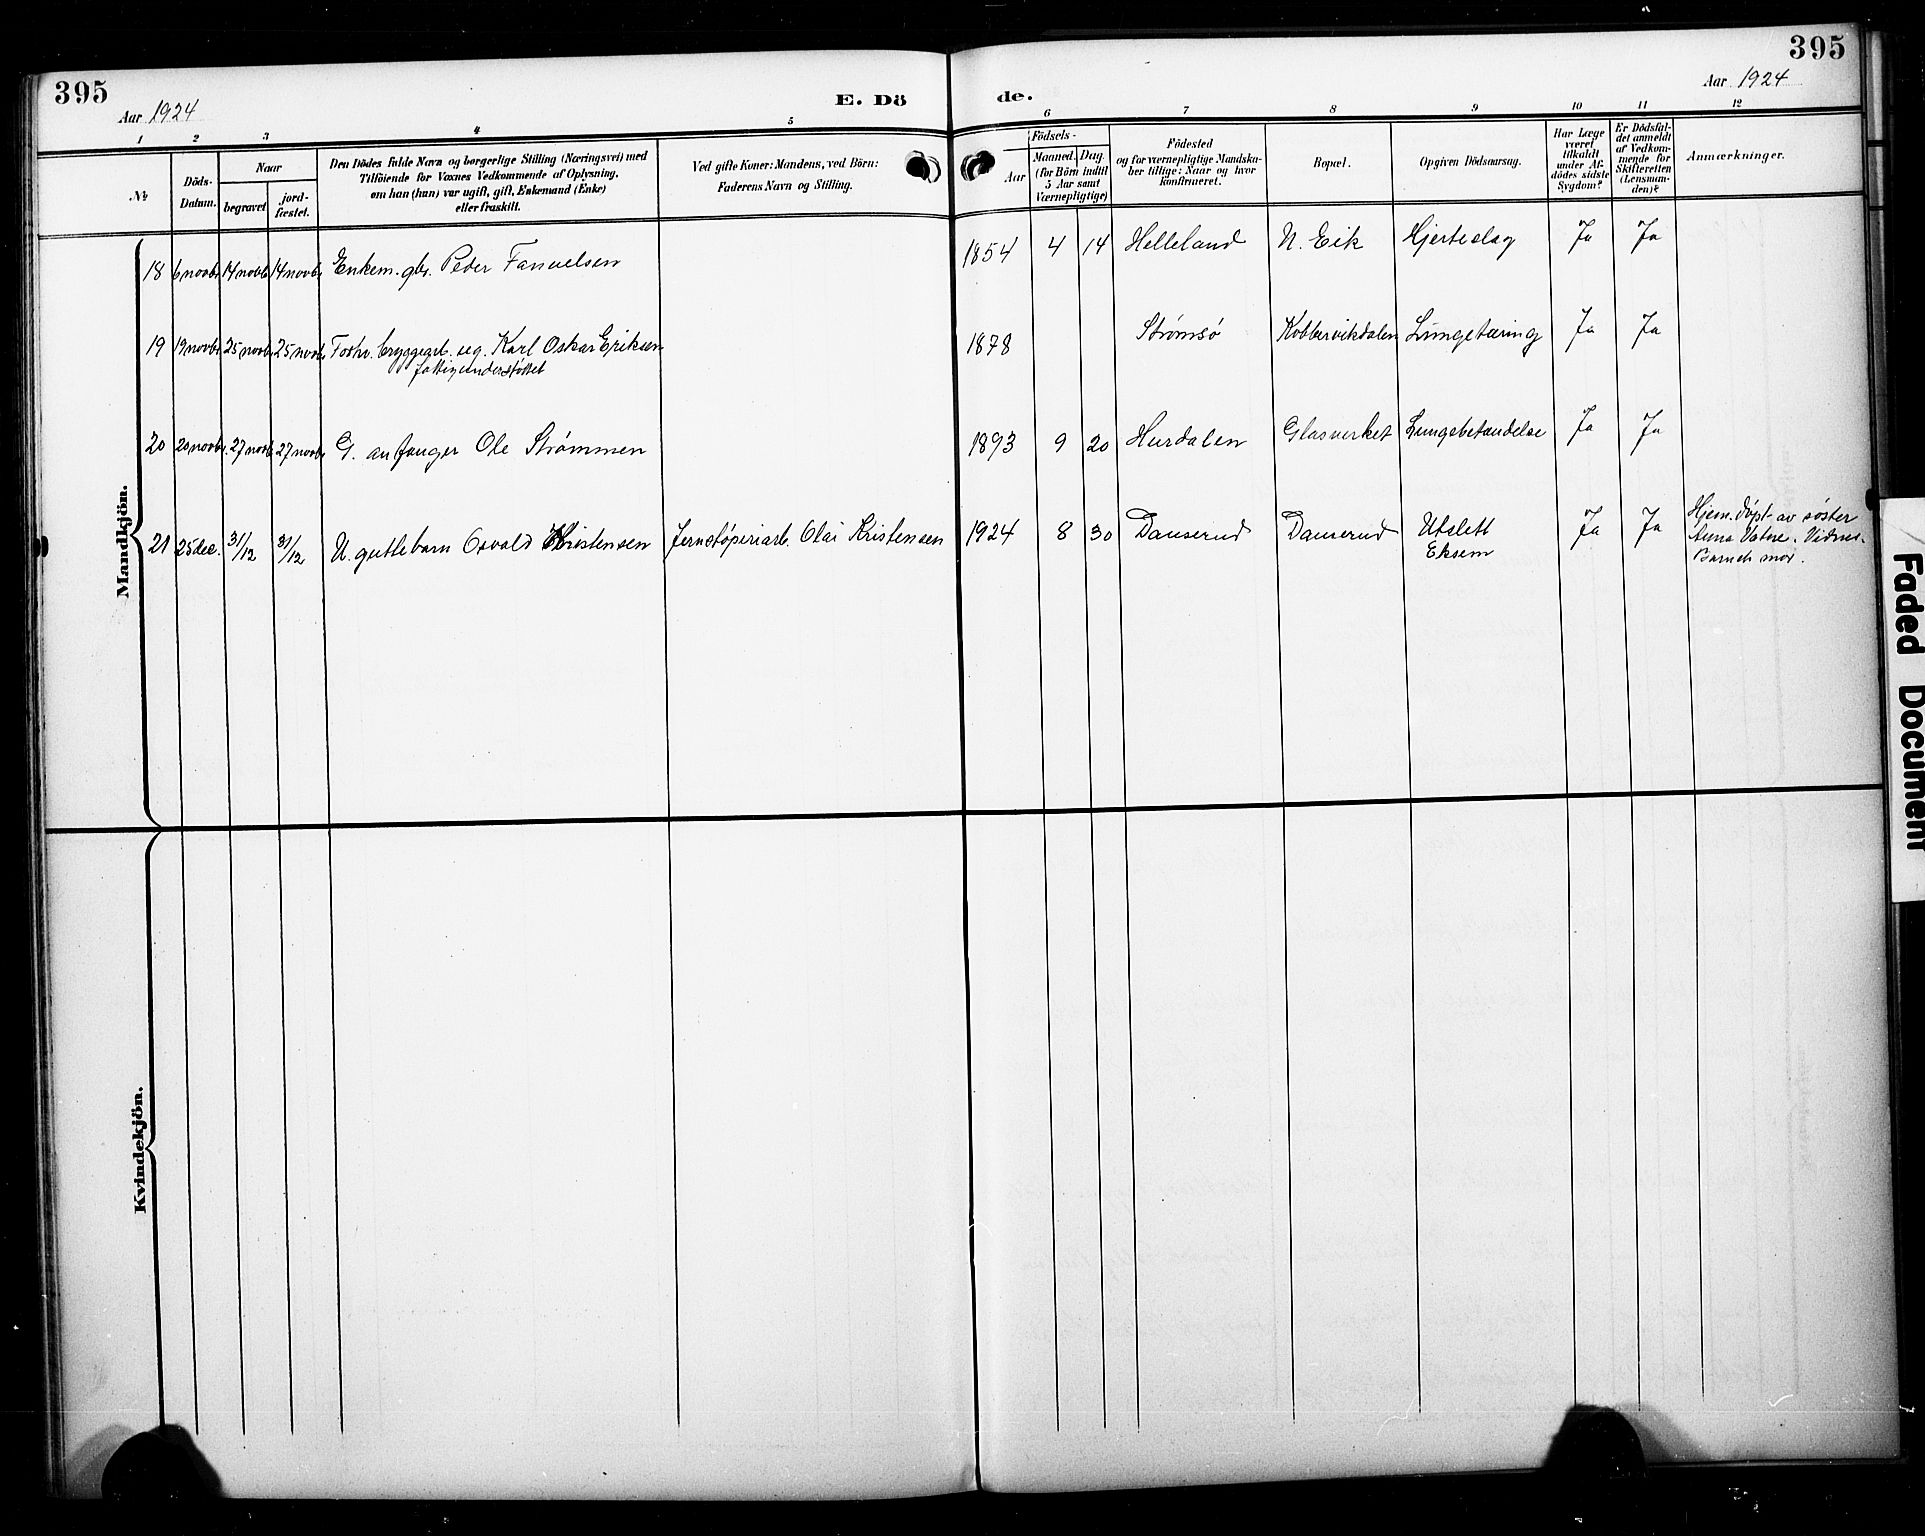 395
Aar 1924
E. Dö
de.
395
Aar 1924
1 2 3 4 5 6 7 8 9 10 11 12
№
Döds-
Datum.
Naar
begravet
jord-
fæstet.
Den Dödes fulde Navn og borgerlige Stilling (Næringsvei) med
Tilföiende for Voxnes Vedkommende af Oplysning,
om han (hun) var ugift, gift, Enkemand (Enke)
eller fraskilt.
Ved gifte Koner: Mandens, ved Börn:
Faderens Navn og Stilling.
Födsels-
Aar
Maaned. Dag.
(for Börn indtil
5 Aar samt
Værnepligtige)
Födested
og for værnepligtige Mandska-
ber tillige: Naar og hvor
konfirmeret.
Bopæl.
Opgiven Dödsaarsag.
Har Læge
været
tilkaldt
under Af-
dödes sidste
Sygdom?
Er Dödsfal-
det anmeldt
af Vedkom-
mende for
Skifteretten
(Lensman-
den)?
Anmærkninger.
Mandkjön.
18 6 novbr. 14 novbr. 14 novbr. Enkem. gbr. Peder Fanuelsen 1854 4 14 Helleland N. Eik Hjerteslag Ja Ja
19 19 novbr. 25 novbr. 25 novbr. Forhv. bryggearb. ug. Karl Oskar Eriksen 1878 Strømsø Kobbervikdalen Lungetæring Ja Ja
fattigunderstøttet
20 20 novbr. 27 novbr. 27 novbr. G. anfanger Ole Strømmen 1893 9 20 Hurdalen Glasverket Lungebetændelse Ja Ja
21 25 dec. 31/12 31/12 U. guttebarn Osvald Kristensen Jernstøperiarb. Olai Kristensen 1924 8 30 Danserud Danserud Utslett Ja Ja Hjem. døpt av søster
Eksem Anna Vatne. Vidner.
Barnets mor.
Kvindekjön.
Faded Document